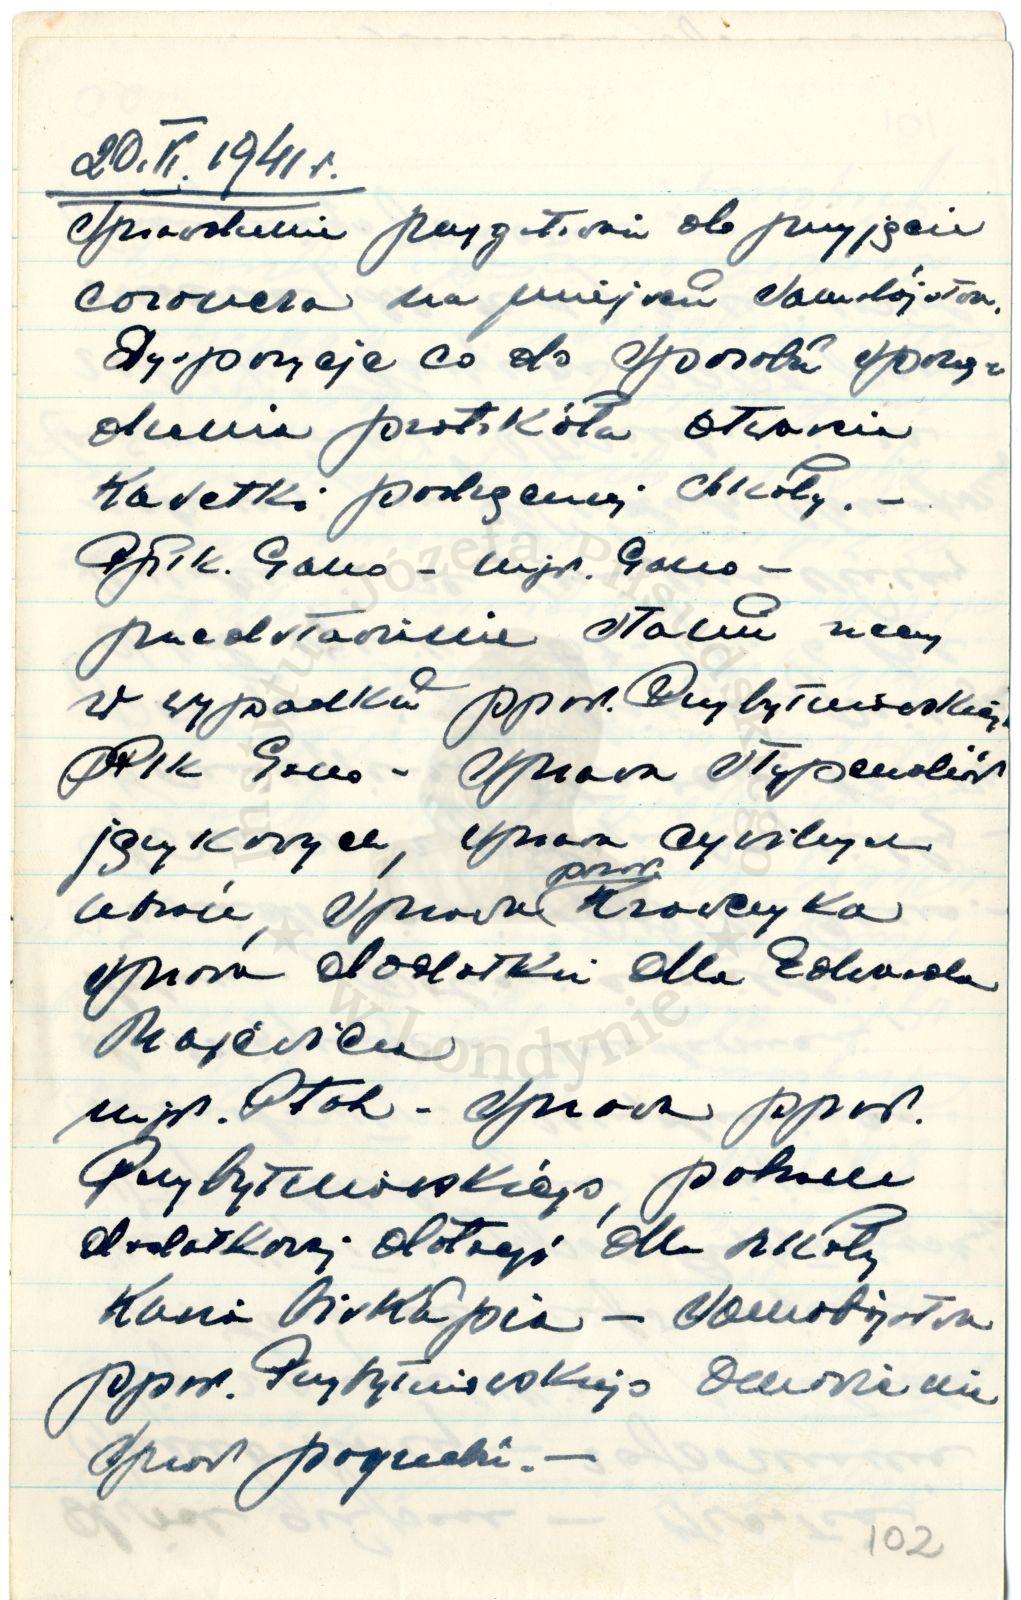 20.VI.1941 r.
Sprawdzenie przygotowań do przyjęcia
coronera na miejscu samobójstwa.
Dyspozycje co do sposobu sporzą-
dzenia protokółu otwarcia
kasetki podręcznej szkoły. -
Ppłk. Gano - mjr. Gano -
przedstawienie stanu rzeczy
w wypadku ppor. Przybytniowskiego
Płk Gano - sprawa stypendiów
językowych, sprawa cywilnych
ubrań, sprawa por. Krawczyka
sprawa dodatku dla Edwarda
mjr. Ptak - sprawa ppor.
Przybytniowskiego, pobranie
dodatkowej dotacji dla szkoły
Ksiądz Biskup - samobójstwo
ppor. Przybytniowskiego omówienie
spraw pogrzebu. -
102
Instytut Józefa Piłsudskiego
w Londynie